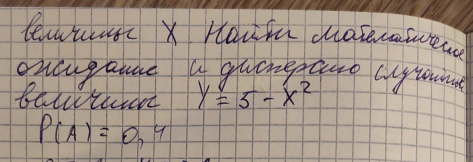 величины X Найти математическое
ожидание и дисперсию случайной
величины Y = 5 - X²
P(A) = 0,4